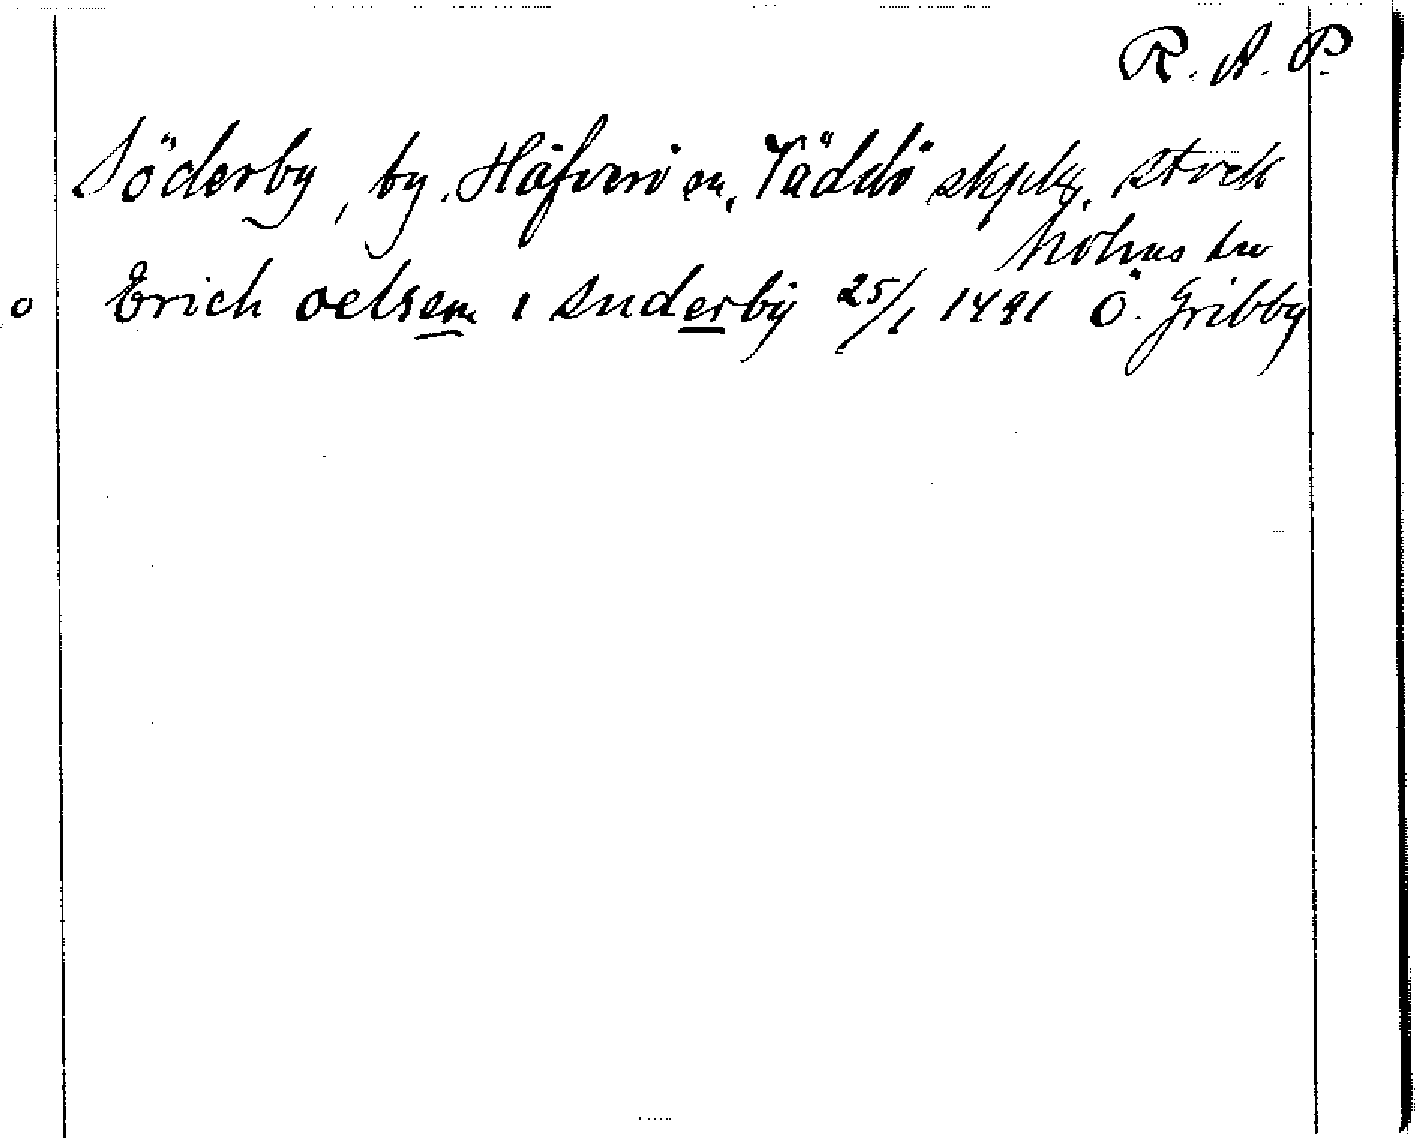 R. A. P.
Söderby, by, Häfverö sn, Väddö skplg, Stock
holms län
o Erich oelsem i suderby 25/1 1491 Ö. Gribby